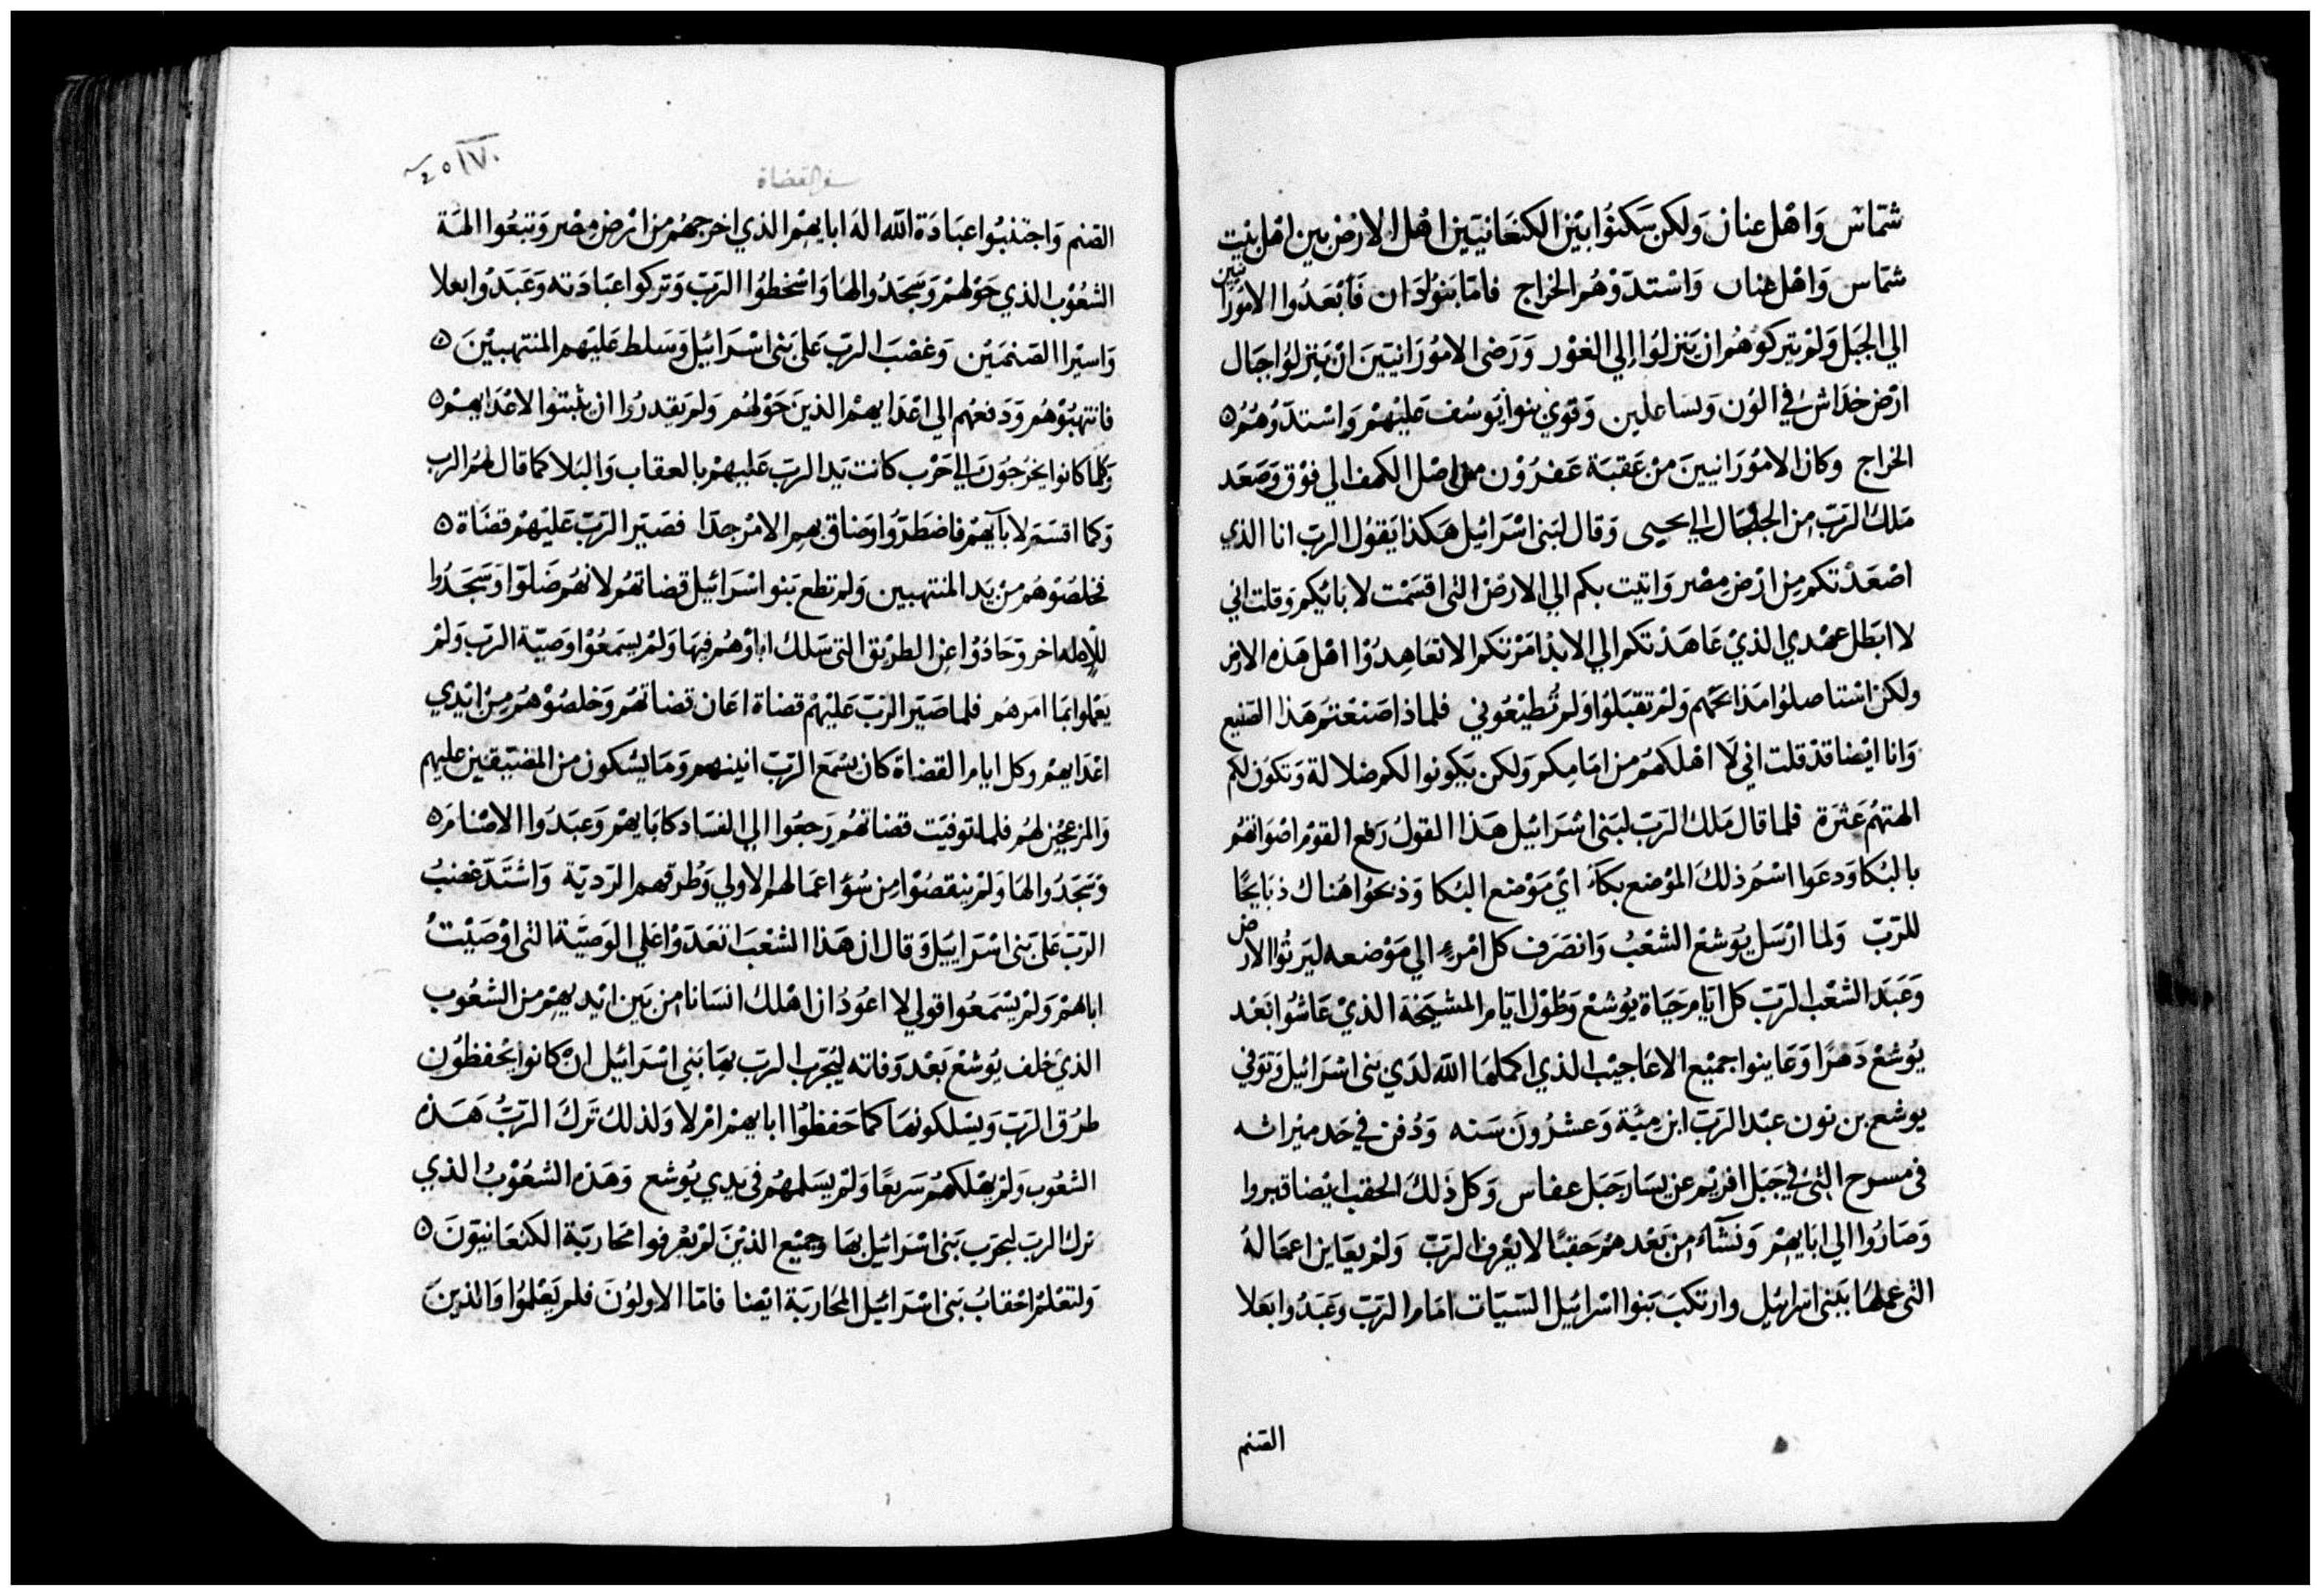 شمّاس وَاهْل عنان وَلكن سَكنوُا بَيْن الكنعَانيّين اهْل الارْض بين اهْل بيْت
شمّاس وَاهْل عنان وَاستدّوْهُم الخراج فامّا بَنوُا دَان فَأبْعَدُوا الامُورَانيين
الي الجبَل وَلمْ يتركوُهُم ان يَنزلوُا إلي الغوْر وَرَضى الامُورَانيّين انْ يَنزلوُا جبَال
ارْض خدَاش في الون وَبسَاعلين وَقوي بنوا يوسُف عَليْهمْ وَاسْتدّوهُمُ ٥
الخراج وكان الامُوْرَانيينَ منْ عَقبَة عَفرُوْن من اصْل الكهف الي فوْق وَصَعَد
مَلك الرَبّ من الجلجَال الي يحيى وَقال لبَنى اسْرَائيل هَكذا يَقوُل الربّ انا الذي
اصْعَدْتكم مِن ارْض مصْر وَاتيت بكم الي الارْض التى اقسَمْت لابَائِكم وَقلت اني
لا ابَطل عهْدي الذيْ عَاهَدْتكم الي الابدْ امَرْتكم الا تعَاهدُوْا اهْل هَذه الارض
ولكن اسْتاصلوُا مَذابحَهم وَلمْ تقبَلوُا ولم تُطيْعُوني فلماذا صَنعْتم هَذا الصّنيع
وَانا ايْضا قدْ قلت اني لَا اهْلكهُم من امَامِكم وَلكن يَكونوا لكم ضلالة وَتكوُن لكم
الهتهُم عَثرَة فلما قال مَلك الرَبّ لبَنى اسْرَائيل هَذا القولُ رَفع القوْم اصْوَاتهُم
بالبُكا وَدعَوا اسْمُ ذلكَ الموْضع بكآ ايْ مَوْضع البُكا وَذبحُوا هُناك ذبَايحًا
للرَبّ وَلما ارْسَل يوُشعْ الشعْبُ وَانصَرَف كل امْرءٍ الي مَوْضعه ليَرثوُا الارض
وَعَبَد الشعْب الرَبّ كل ايَام حَيَاة يوُشعْ وَطوْل ايّام المشيَخَة الذيْ عَاشوُا بَعْد
يوُشعْ دَهرًا وَعَاينوا جميْع الاعَاجيْب الذي اكملهَا اللّه لدَي بنى اسْرَائيل وَتوَفي
يوشع بن نون عبْد الرَبّ ابن ميَّة وَعشرُونَ سَنه وَدُفن في حَد ميْراثه
في مسرح التى في جَبَل افريْم عن يسَار جَبَل عفاس وَكل ذَلكَ الحقب ايْضا قبروا
وَصَارُوا الي ابَايهمْ وَنشآءَ من بَعْدهمْ حَقبًا لا يعْرف الربّ وَلمْ يعَاين اعمَالهُ
التى عملهَا بَبنى اسْرائيل وارتكبَ بَنوا اسْرَائيل السّيَات امَام الرَبّ وعَبَدُوا بَعْلا
الصّنم
سفر القضاة
الصّنم وَاجتنبوُا عبَادَة اللّه الهَ ابايهمْ الذي اخرجهُم من ارْض مصْر وَتبعُوا المَة
الشعُوْب الذي حَوْلهمْ وَسَجَدُوا لهَا وَاسْخطوُا الرَبّ وَتركوا عبَادَته وَعَبَدُوا بعلا
وَاسيْرا الصّنمَيْن وَغضبَ الربّ عَلى بَنى اسْرَائيْل وَسَلط عَليَهم المنتهبيْنَ ٥
فانتهبُوْهُم وَدَفعَهُم الي اعْدَايهمْ الذينَ حَوْلهُم وَلم يَقدرُوا ان يثبتوُا لاعْدَايهمْ ٥
وَكلما كانوا يخرُجوُنَ الي حَرْب كانت يَد الربّ عَليهمْ بالعقاب وَالبَلا كما قال لهُم الرب
وَكما اقسَمَ لابآيهمْ فاضطرّوُا وَضاق بهم الامْر جدّا فصَيّر الرَبّ عَليْهمْ قضَاة ٥
تخلصُوْهُم منْ يَد المنتهبين وَلم تطع بَنو اسْرَائيل قضاتهُم لانهُم ضَلوّا وَسَجَدُوا
للإله اخر وَحَادَوْا عن الطريْق التى سَلك اباوُهُم فيهَا وَلمْ يسَمعُوْا وَصيّة الربّ وَلمْ
يعْملوا بمَا امَرهُم فلما صَيّر الرَبّ عَليْهمْ قضاة اعَان قضاتهُم وَخلصُوْهُم مِنْ ايْدي
اعْدَايهمْ وكل ايام القضاة كان يسْمَع الرَبّ انينهم وَمَا يشكون من المضيّقين عليهم
وَالمزعجيْن لهُم فلما توفيَت قضاتهُم رَجعُوا الي الفسَاد كابَايهمْ وَعبَدُوا الاصْنامَ ٥
وَسَجَدُوا لهَا وَلمْ ينقصُوْا مِن سُوُ اعمَالهم الاولي وَطُرقهم الرّديّة وَاشْتَدّ غضبُ
الرَبّ عَلى بَنى اسْرَاييْل وَقال ان هَذا الشعْبَ ا تعَدّوْا عَلي الوَصيَّة التى اوْصَيْتُ
اباهمْ وَلمْ يسْمَعُوا قولي لا اعُودُ ان اهْلك انسَانا من بَين ايْديهمْ من الشعُوب
الذيْ خلف يوُشعْ بَعْد وَفاته ليُجَرّب الربّ بهَا بَني اسْرَائيل انْ كانوا يحْفظوُن
طرُق الرَبّ وَيسْلكونهَا كما حَفظوُا ابايهمْ امْ لا وَلذلكُ تَركَ الرَبُّ هَذه
الشعُوب وَلمْ يهْلكهُمْ سَريعًا وَلمْ يسَلمهُم في يَدي يوُشع وَهَذه الشعُوْبُ الذي
ترك الربّ ليجرّب بَنى اسْرَائيل بهَا وجميْع الذيْنَ لمْ يعْرفوا محَاربَة الكنعَانيّونَ ٥
وَلتعْلمْ احْقابُ بَنى اسْرَائيل المحَاربَة ايْضا فامّا الاولوُنَ فلم يَعْلموُا وَالذينَ